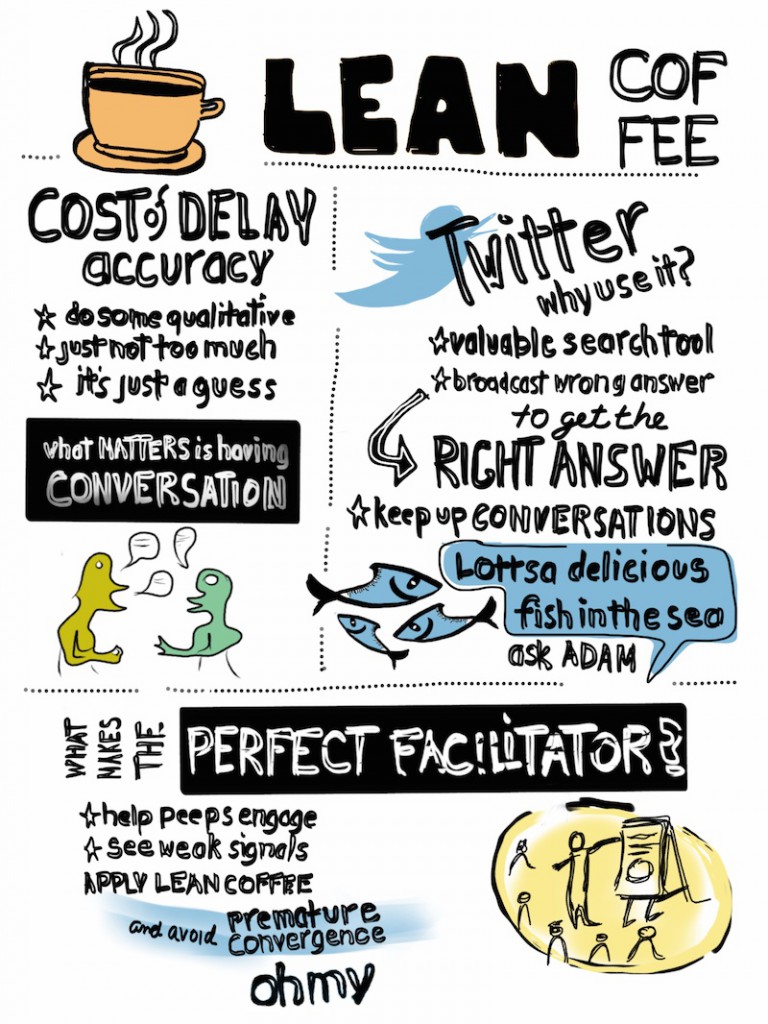 LEAN COF
FEE
COST of DELAY
accuracy
do some qualitative
just not too much
it's just a guess
what MATTERS is having
CONVERSATION
Twitter
why use it?
valuable search tool
broadcast wrong answer
to get the
RIGHT ANSWER
keep up CONVERSATIONS
Lottsa delicious
fish in the sea
ask ADAM
WHAT
MAKES
THE
PERFECT FACiLiTATOR?
help peeps engage
see weak signals
APPLY LEAN COFFEE
and avoid premature
convergence
ohmy